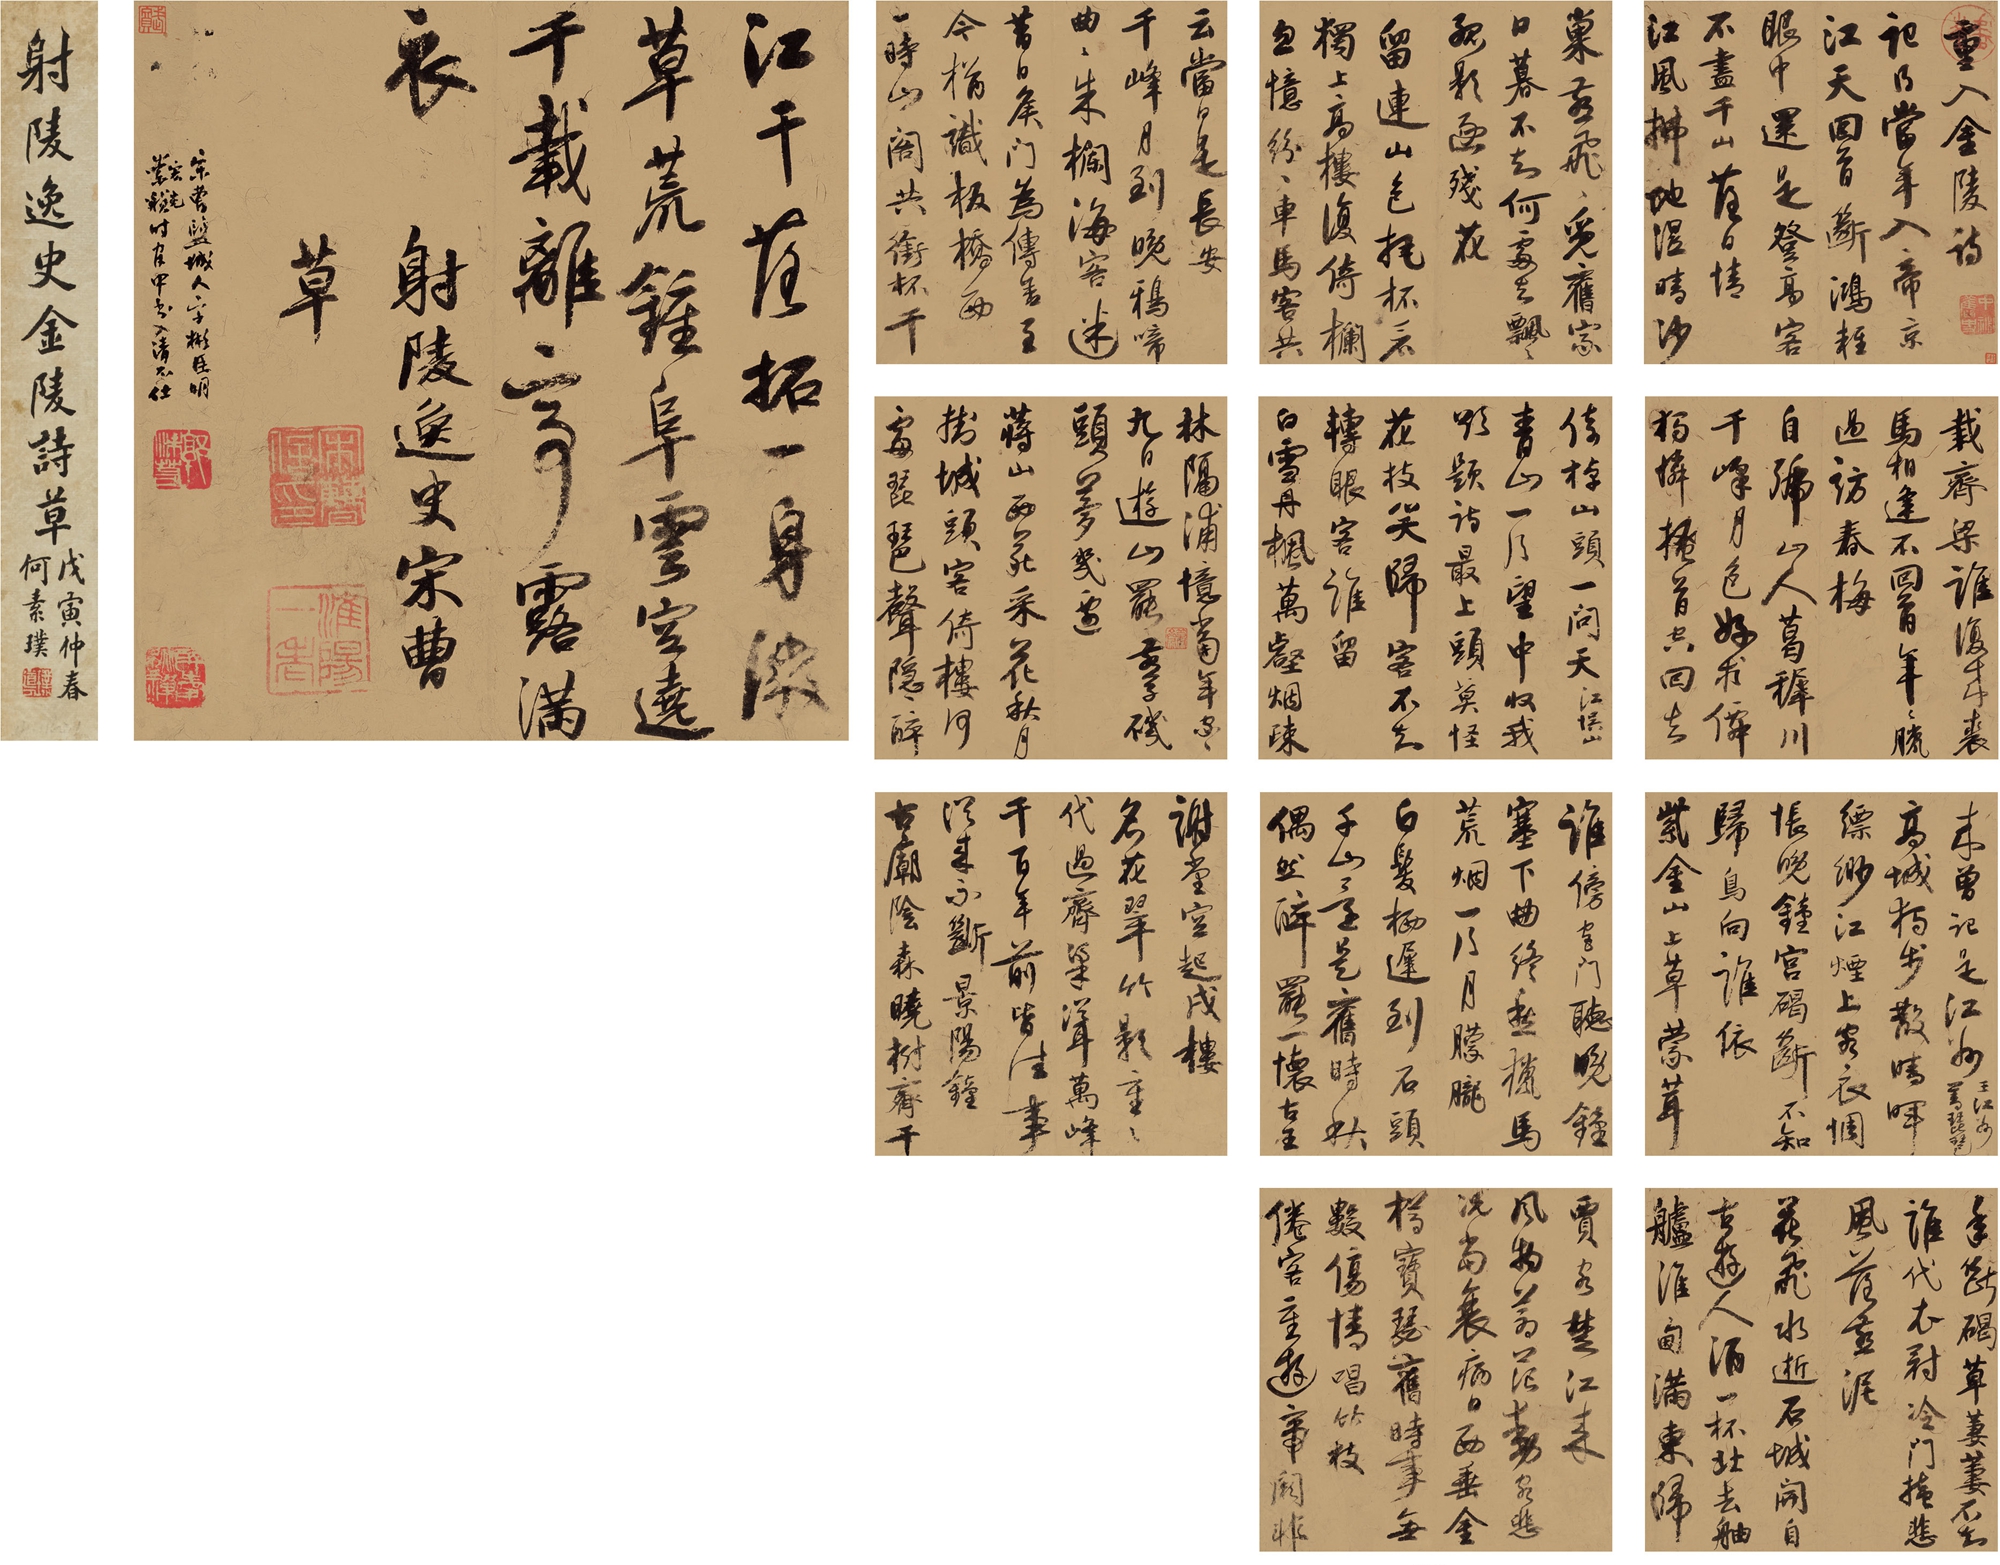 射陵逸史金陵詩草
戊寅仲春
何素璞
重入金陵詩
記得當年入帝京
江天回首斷鴻輕
眼中還是登高客
不盡千山落日情
江風拂地溼晴沙
巢燕飛飛覓舊家
日暮不知何處去飄飄
孤影逐殘花
留連山色把杯看
獨上高樓復倚欄
忽憶紛紛車馬客共
云當日是長安
千峰月到晚鴉啼
曲曲朱欄海客迷
昔日侯門為傳舍至
今猶識板橋西
一時山閣共銜杯千
載齊梁誰復哀裘
馬相逢不回首年年騎
過訪春梅
自號山人葛稺川
千峰月色好求僊
獨憐搔首空回去
倚棹山頭一問天
青山一片望中收我
欲題詩最上頭莫怪
花枝笑歸客不知
轉眼客誰留
白雪丹楓萬壑烟疎
林隔浦憶當年寥寥
九日遊山罷燕子磯
頭夢幾邊
蔣山西苑采花秋月
掛城頭客倚樓何
處琵琶聲隱隱醉
來曾記是江州
王江州
善琵琶
高城獨步散晴暉
縹緲江煙上客衣惆
悵晚鐘宮碣斷不知
歸鳥向誰依
紫金山上草蒙茸
誰傍宮門聽晚鐘
塞下曲終愁櫪馬
荒烟一片月朦朧
白髮栖遲到石頭
千山豈是舊時秋
偶然醉罷一懷古王
謝堂空起戍樓
名花翠竹影重重
代過齊梁聳萬峰
千百年前皆往事
從來不斷景陽鐘
古廟陰森曉樹齊千
年斷碣草萋萋不知
誰代衣冠冷門掩悲
風落燕泥
花飛水逝石城開自
古遊人酒一杯北去舳
艫淮甸滿東歸
賈客楚江來
風物蒼茫動客悲
況當衰病日西垂金
樽寶瑟舊時事無
數傷情唱竹枝
倦客重遊帝闕非
江干落拓一身微
草荒鍾阜雲空遶
千載離亭露滿
衣
射陵逸史宋曹
草
宋曹鹽城人字彬臣明
崇禎時官中書入清不仕